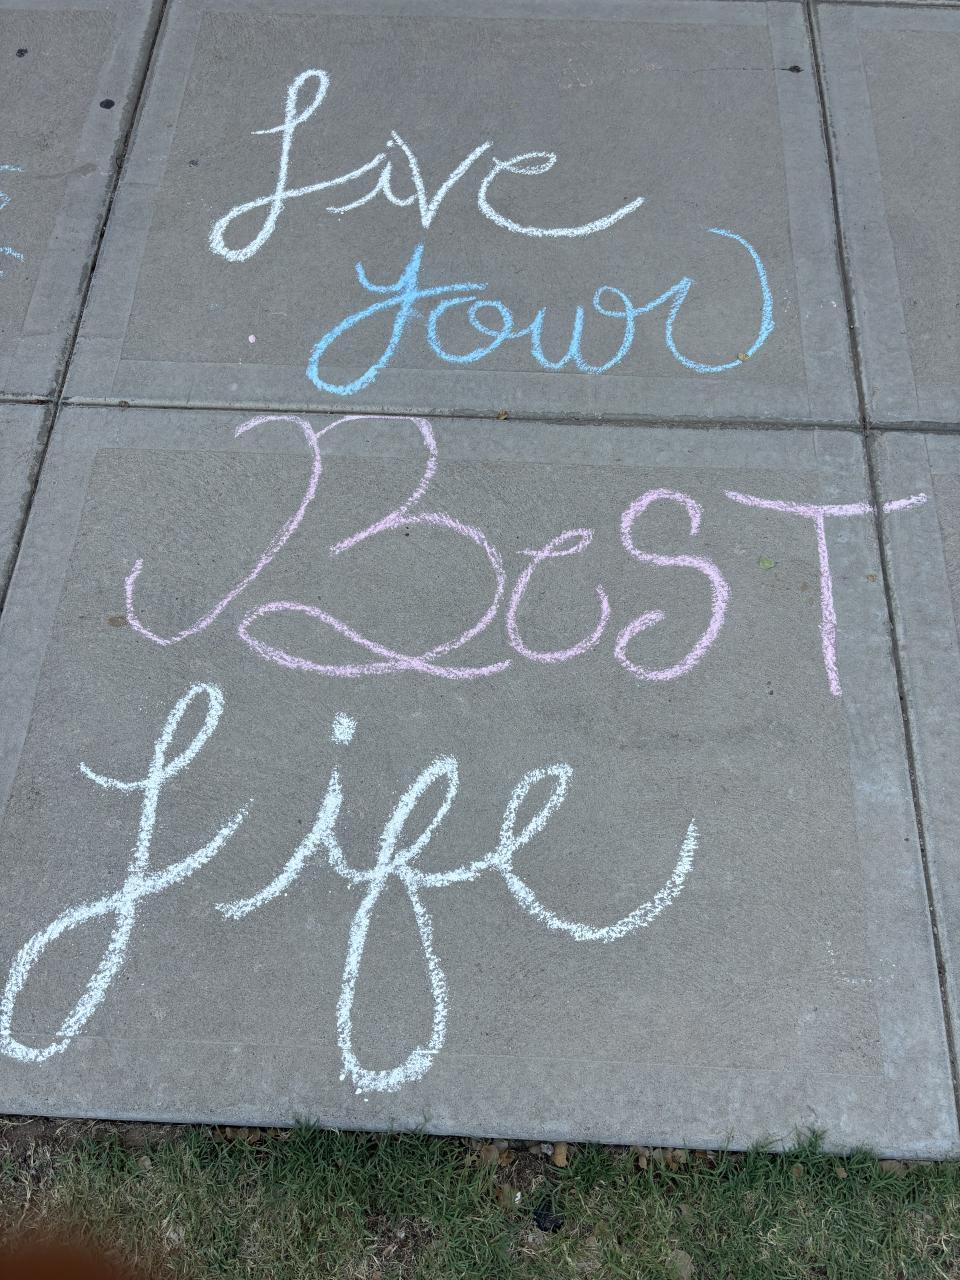 Live
your
BesT
Life